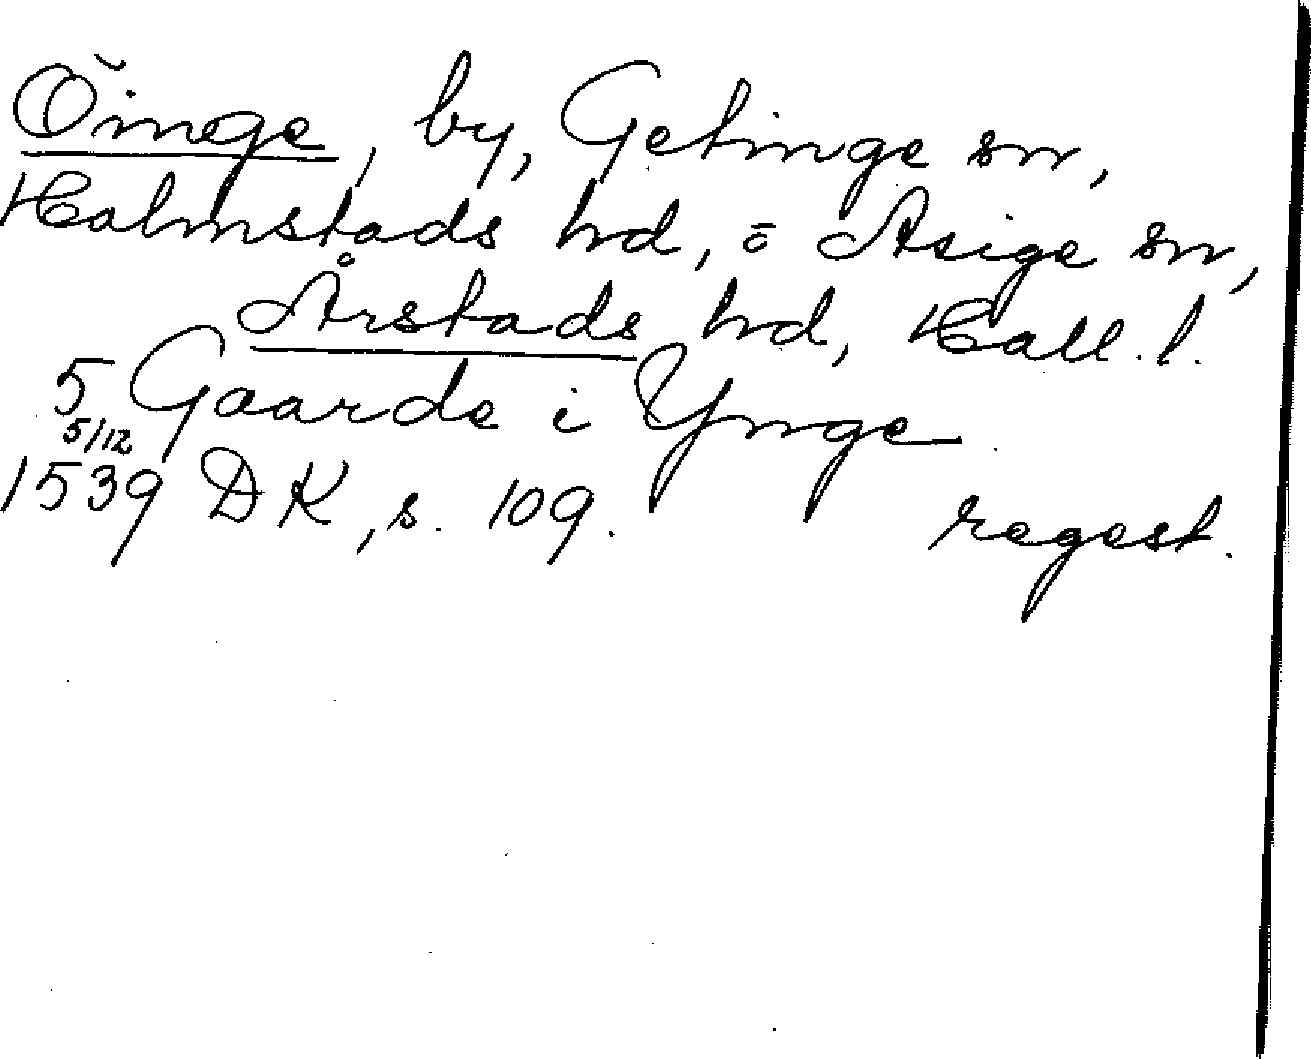 Öinge, by, Getinge sn,
Halmstads hd, o Asige sn,
Årstads hd, Hall. l.
5 Gaarde i Ynge
5/12
1539 DK, s. 109. regest.